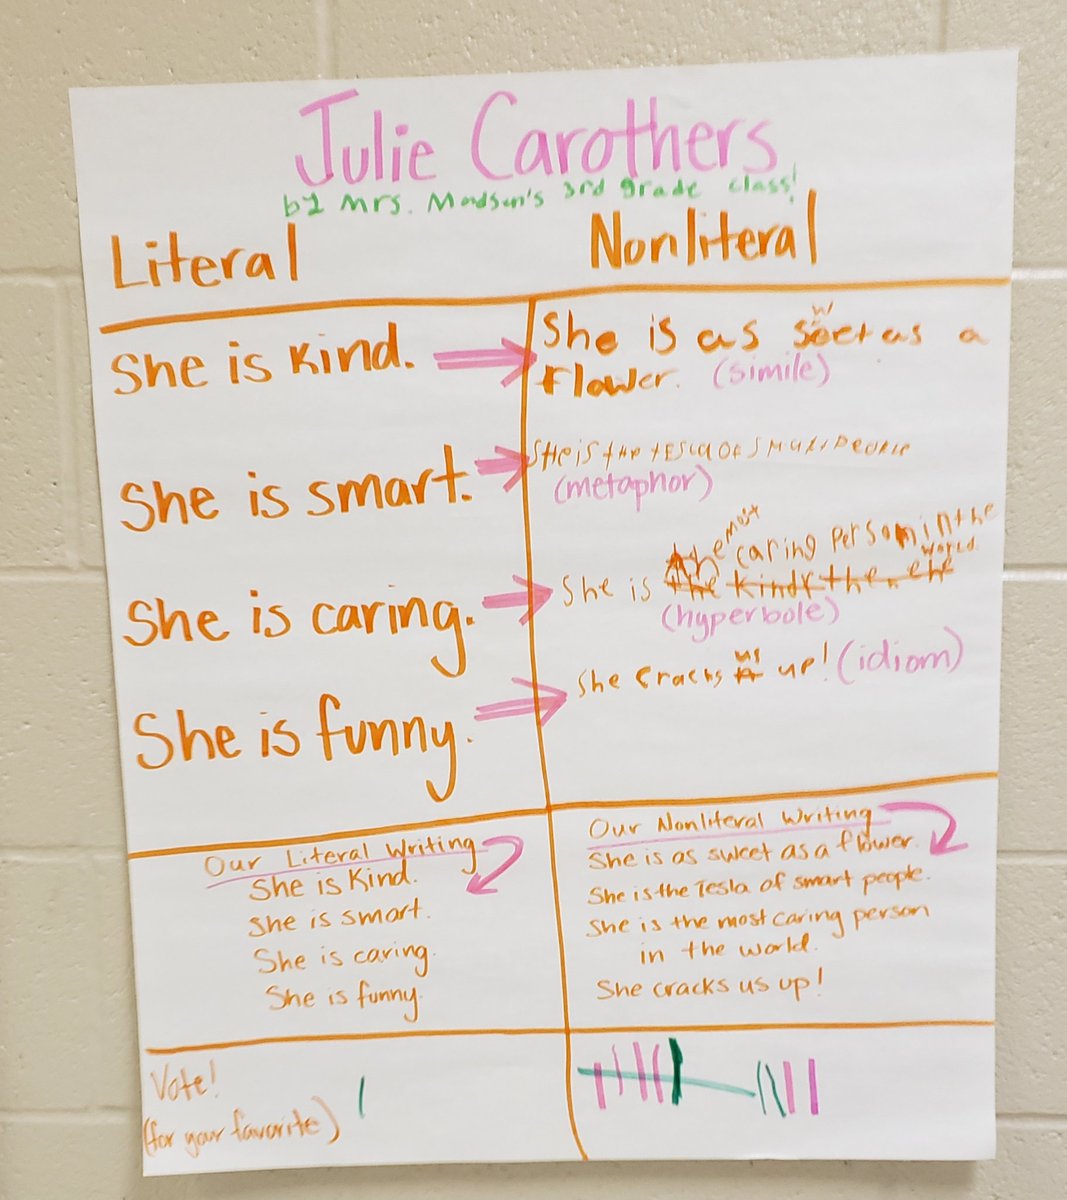 Julie Carothers
by Mrs. Madsen's 3rd grade class!
Literal
Nonliteral
She is kind.
She is as sweet as a
flower. (simile)
She is smart.
She is the tesla of smart people
(metaphor)
She is caring.
the most caring person in the
world.
She is the
(hyperbole)
She is funny.
She cracks us up! (idiom)
Our Literal Writing
She is kind.
She is smart.
She is caring.
She is funny.
Our Nonliteral Writing
She is as sweet as a flower.
She is the Tesla of smart people.
She is the most caring person
in the world.
She cracks us up!
Vote!
(for your favorite)